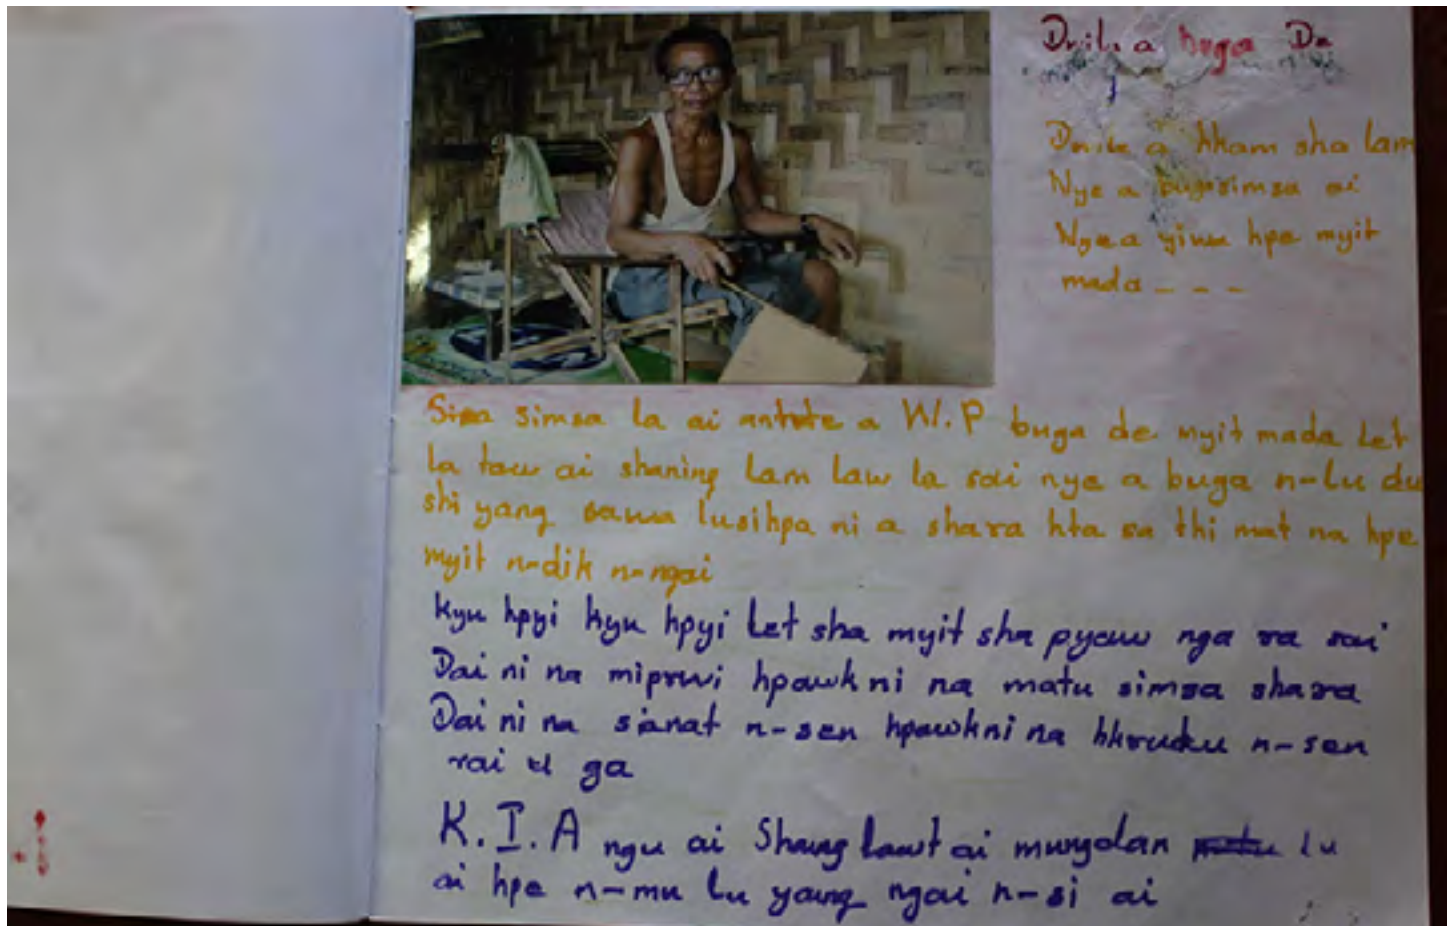 buga De
a hkam sha lam
Nye a buga simsa ai
Nye a yinu hpe myit
mada - - -
simsa la ai a W.P buga de myit mada Let
la taw ai shaning lam law la sai nye a buga n-lu du
shi yang sawa lusihpa ni a shara hta sa thi mat na hpe
myit n-dik n-ngai
kyu hpyi kyu hpyi Let sha myit sha pyaw nga ra sai
Dai ni na miprwi hpawk ni na matu simsa shara
Dai ni na sanat n-sen hpawkni na hkruku n-sen
rai u ga
K.I.A ngu ai Shanglawt ai mungdan lu
ai hpe n-mu lu yang ngai n-si ai